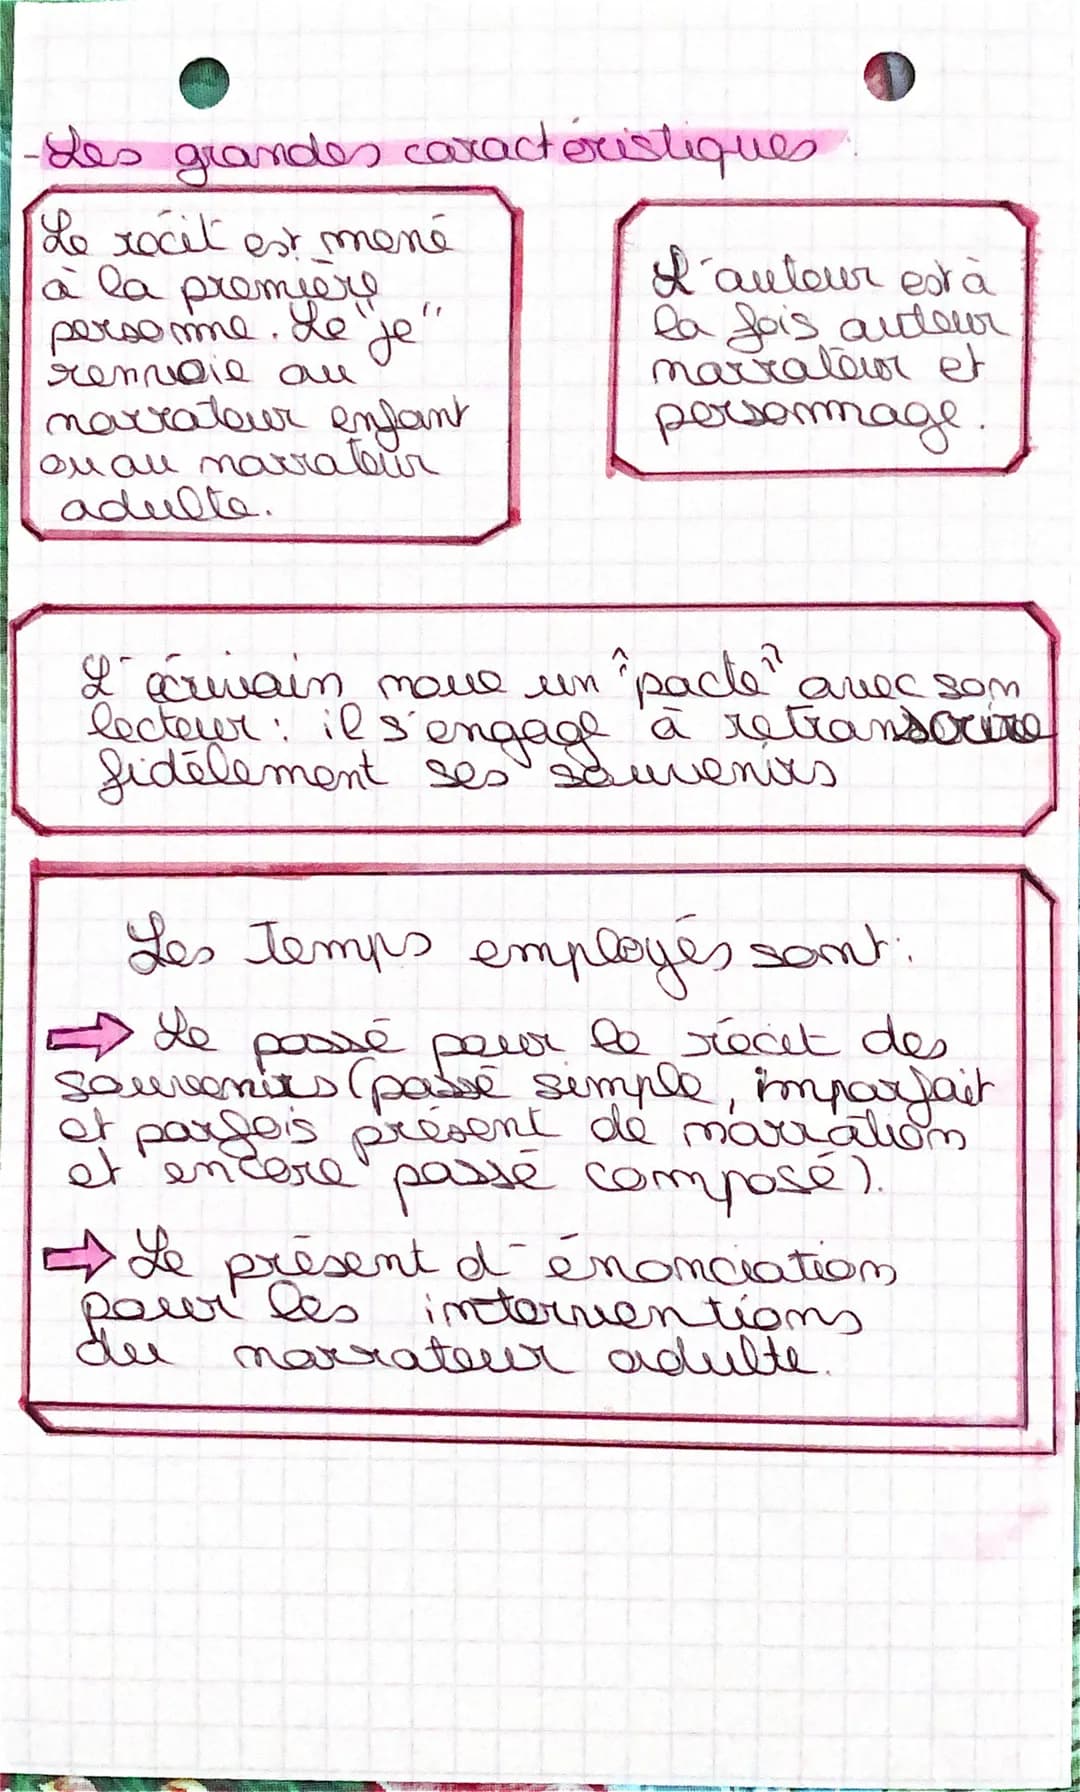 -Les grandes caractéristiques
Le récit est mené
à la première
personne. Le "je"
renvoie au
narrateur enfant
ou au narrateur
adulte.
L'auteur est à
la fois auteur
narrateur et
personnage.
L'écrivain noue un "pacte" avec son
lecteur : il s'engage à retranscrire
fidèlement ses souvenirs
Les Temps employés sont :
Le passé pour le récit des
souvenirs (passé simple, imparfait
et parfois présent de narration
et encore passé composé).
Le présent d'énonciation
pour les interventions
du narrateur adulte.